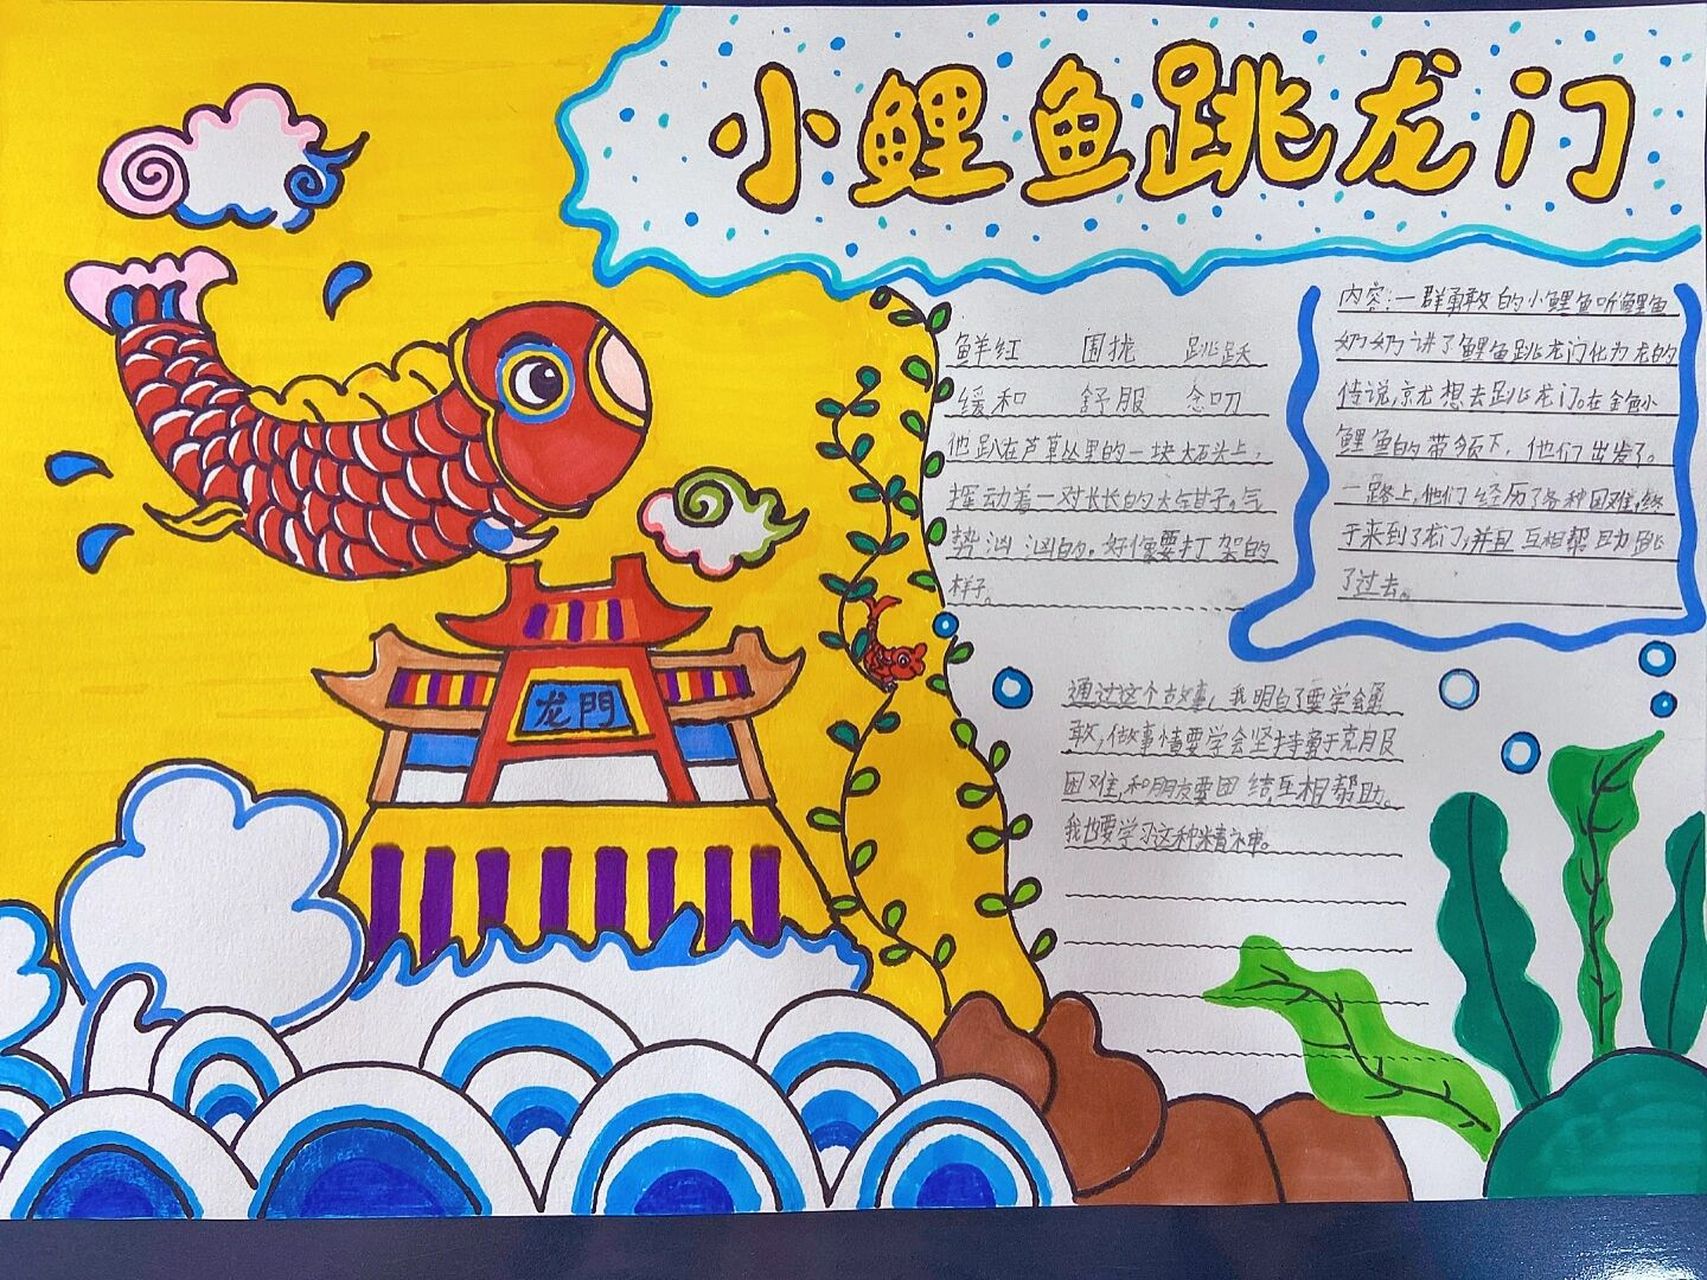 小鲤鱼跳龙门
鲜红 围拢 跳跃
缓和 舒服 念叨
他趴在芦草丛里的一块大石头上,
挥动着一对长长的大钳子。气
势汹汹的。好像要打架的
样子。
内容:一群勇敢的小鲤鱼听鲤鱼
奶奶讲了鲤鱼跳龙门化为龙的
传说,就想去跳龙门。在金色小
鲤鱼的带领下,他们出发了。
一路上,他们经历了各种困难,终
于来到了龙门,并且互相帮助跳
了过去。
龙門
通过这个故事,我明白了要学会勇
敢,做事情要学会坚持勇于克服
困难,和朋友要团结互相帮助。
我也要学习这种精神。